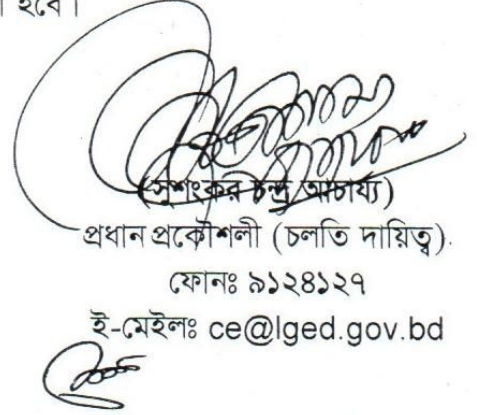 হবে।
(সুশংকর চন্দ্র আচার্য্য)
প্রধান প্রকৌশলী (চলতি দায়িত্ব).
ফোনঃ ৯১২৪১২৭
ই-মেইলঃ ce@lged.gov.bd